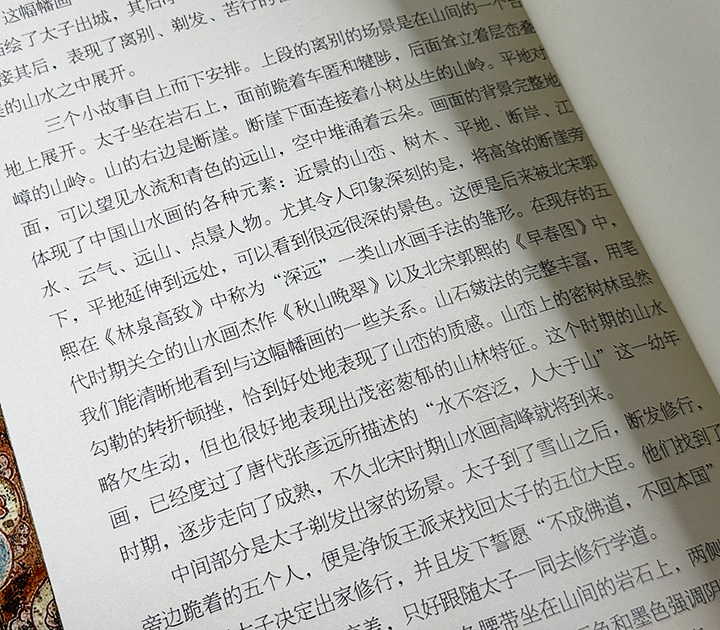 这幅幡画
描绘了太子出城，其后
接其后，表现了离别、剃发、苦行的
的山水之中展开。
三个小故事自上而下安排。上段的离别的场景是在山间的一个
地上展开。太子坐在岩石上，面前跪着车匿和犍陟，后面耸立着层峦叠
嶂的山岭。山的右边是断崖。断崖下面连接着小树丛生的山岭。平地对
面，可以望见水流和青色的远山，空中堆涌着云朵。画面的背景完整地
体现了中国山水画的各种元素：近景的山峦、树木、平地、断岸、江
水、云气、远山、点景人物。尤其令人印象深刻的是，将高耸的断崖旁
下，平地延伸到远处，可以看到很远很深的景色。这便是后来被北宋郭
熙在《林泉高致》中称为“深远”一类山水画手法的雏形。在现存的五
代时期关仝的山水画杰作《秋山晚翠》以及北宋郭熙的《早春图》中，
我们能清晰地看到与这幅幡画的一些关系。山石皴法的完整丰富，用笔
勾勒的转折顿挫，恰到好处地表现了山峦的质感。山峦上的密树林虽然
略欠生动，但也很好地表现出茂密葱郁的山林特征。这个时期的山水
画，已经度过了唐代张彦远所描述的“水不容泛，人大于山”这一幼年
时期，逐步走向了成熟，不久北宋时期山水画高峰就将到来。
中间部分是太子剃发出家的场景。太子到了雪山之后，断发修行，
旁边跪着的五个人，便是净饭王派来找回太子的五位大臣。他们找到了
太子决定出家修行，并且发下誓愿“不成佛道，不回本国”
只好跟随太子一同去修行学道。
腰带坐在山间的岩石上，两侧
色和墨色强调阴